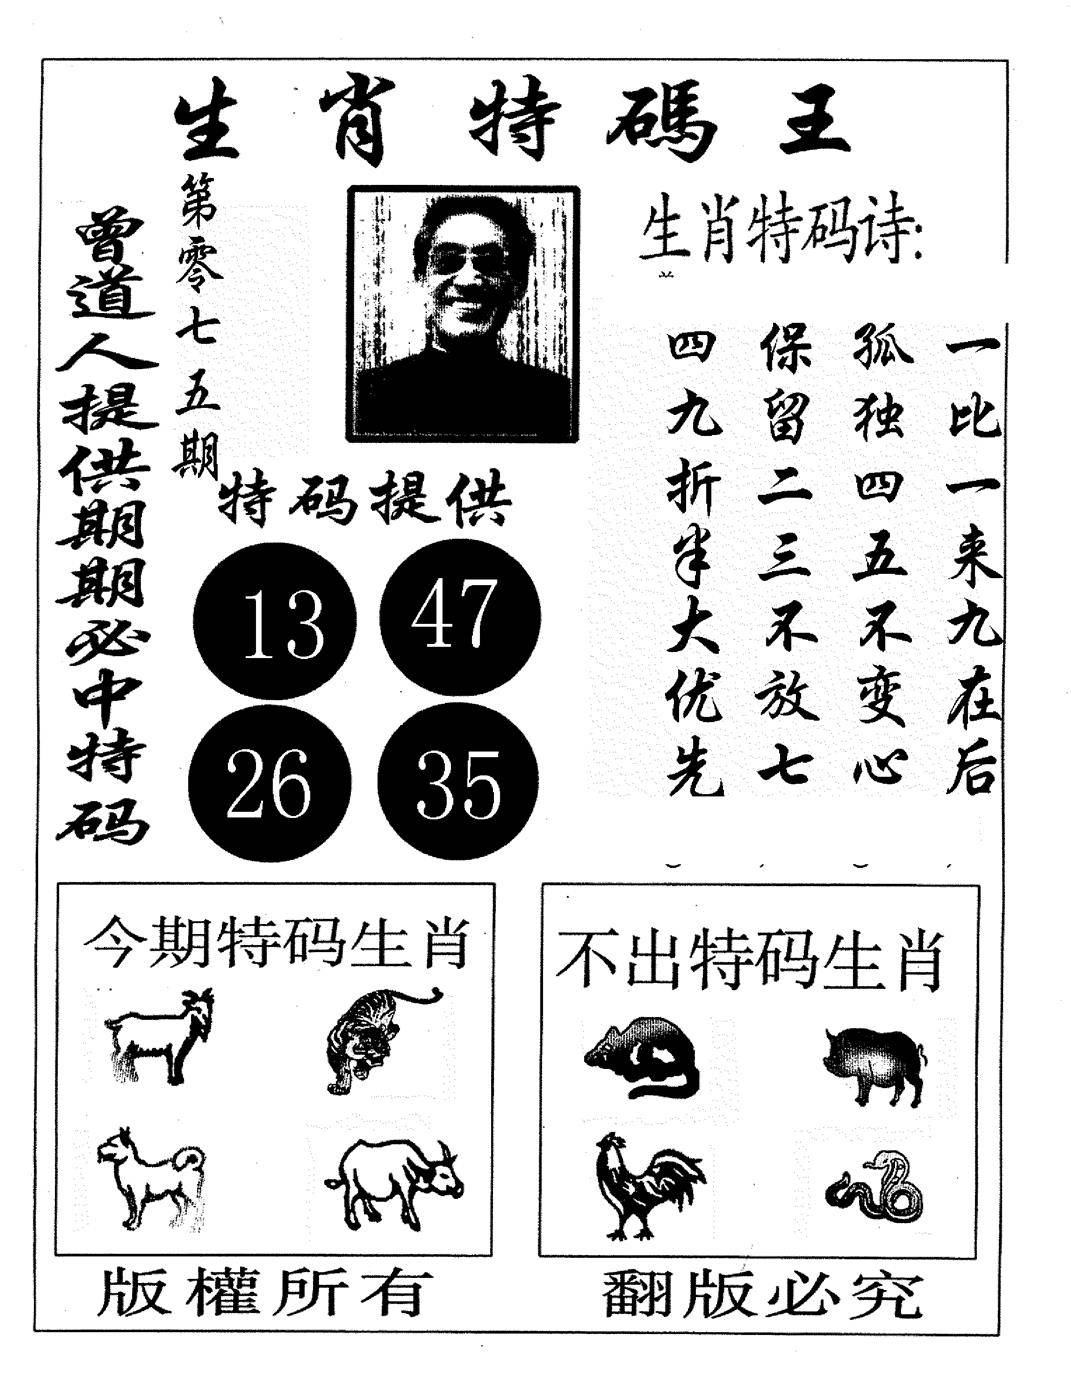 生肖特碼王
第零七五期
曾道人提供期期必中特码
生肖特码诗:
一比一来九在后
孤独四五不变心
保留二三不放七
四九折半大优先
特码提供
13 47
26 35
今期特码生肖
不出特码生肖
版權所有
翻版必究